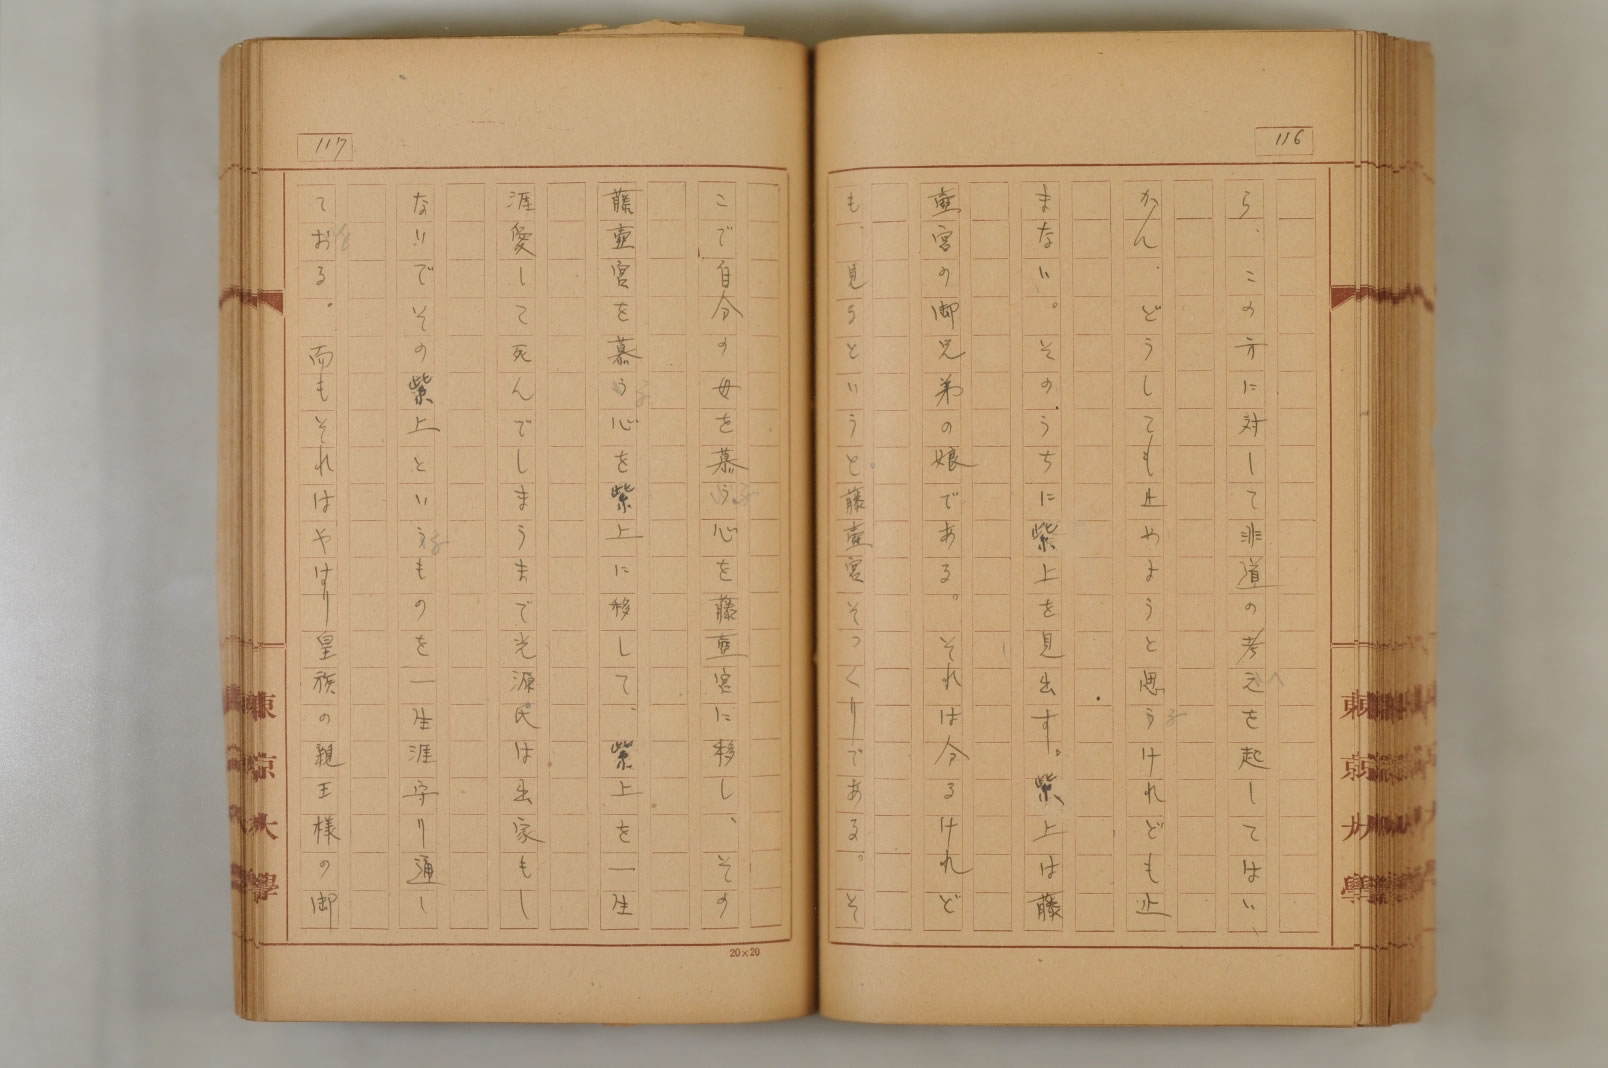 116
ら、この方に対して非道の考えを起してはい
かん、どうしても止やようと思うけれども止
まない。そのうちに紫上を見出す。紫上は藤
壷宮の御兄弟の娘である。それは今るけれど
も、見るというと。藤壷宮そつくりである。そ
117
こで自分の母を慕う心を藤壷宮に移し、その
藤壷宮を慕う心を紫上に移して、紫上を一生
涯愛して死んでしまうまで光源氏は出家もし
ないでその紫上というものを一生涯守り通し
ておる。而もそれはやはり皇族の親王様の御
20×20
東京大學
東京大學